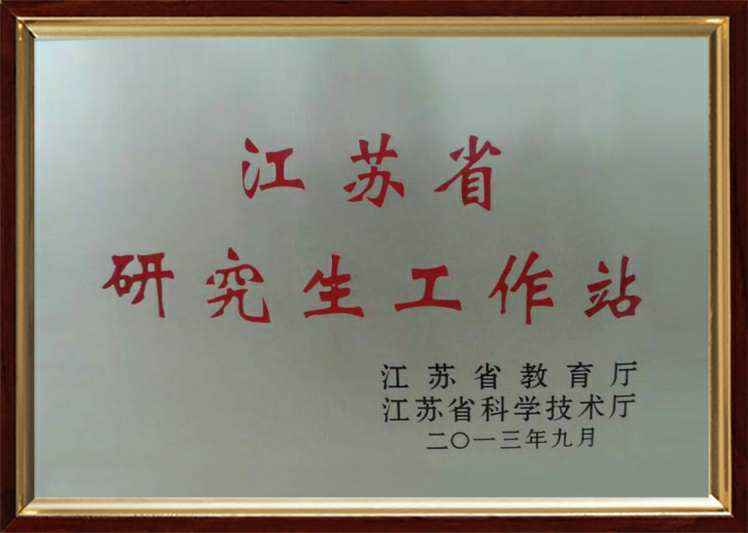 江苏省
研究生工作站
江苏省教育厅
江苏省科学技术厅
二〇一三年九月